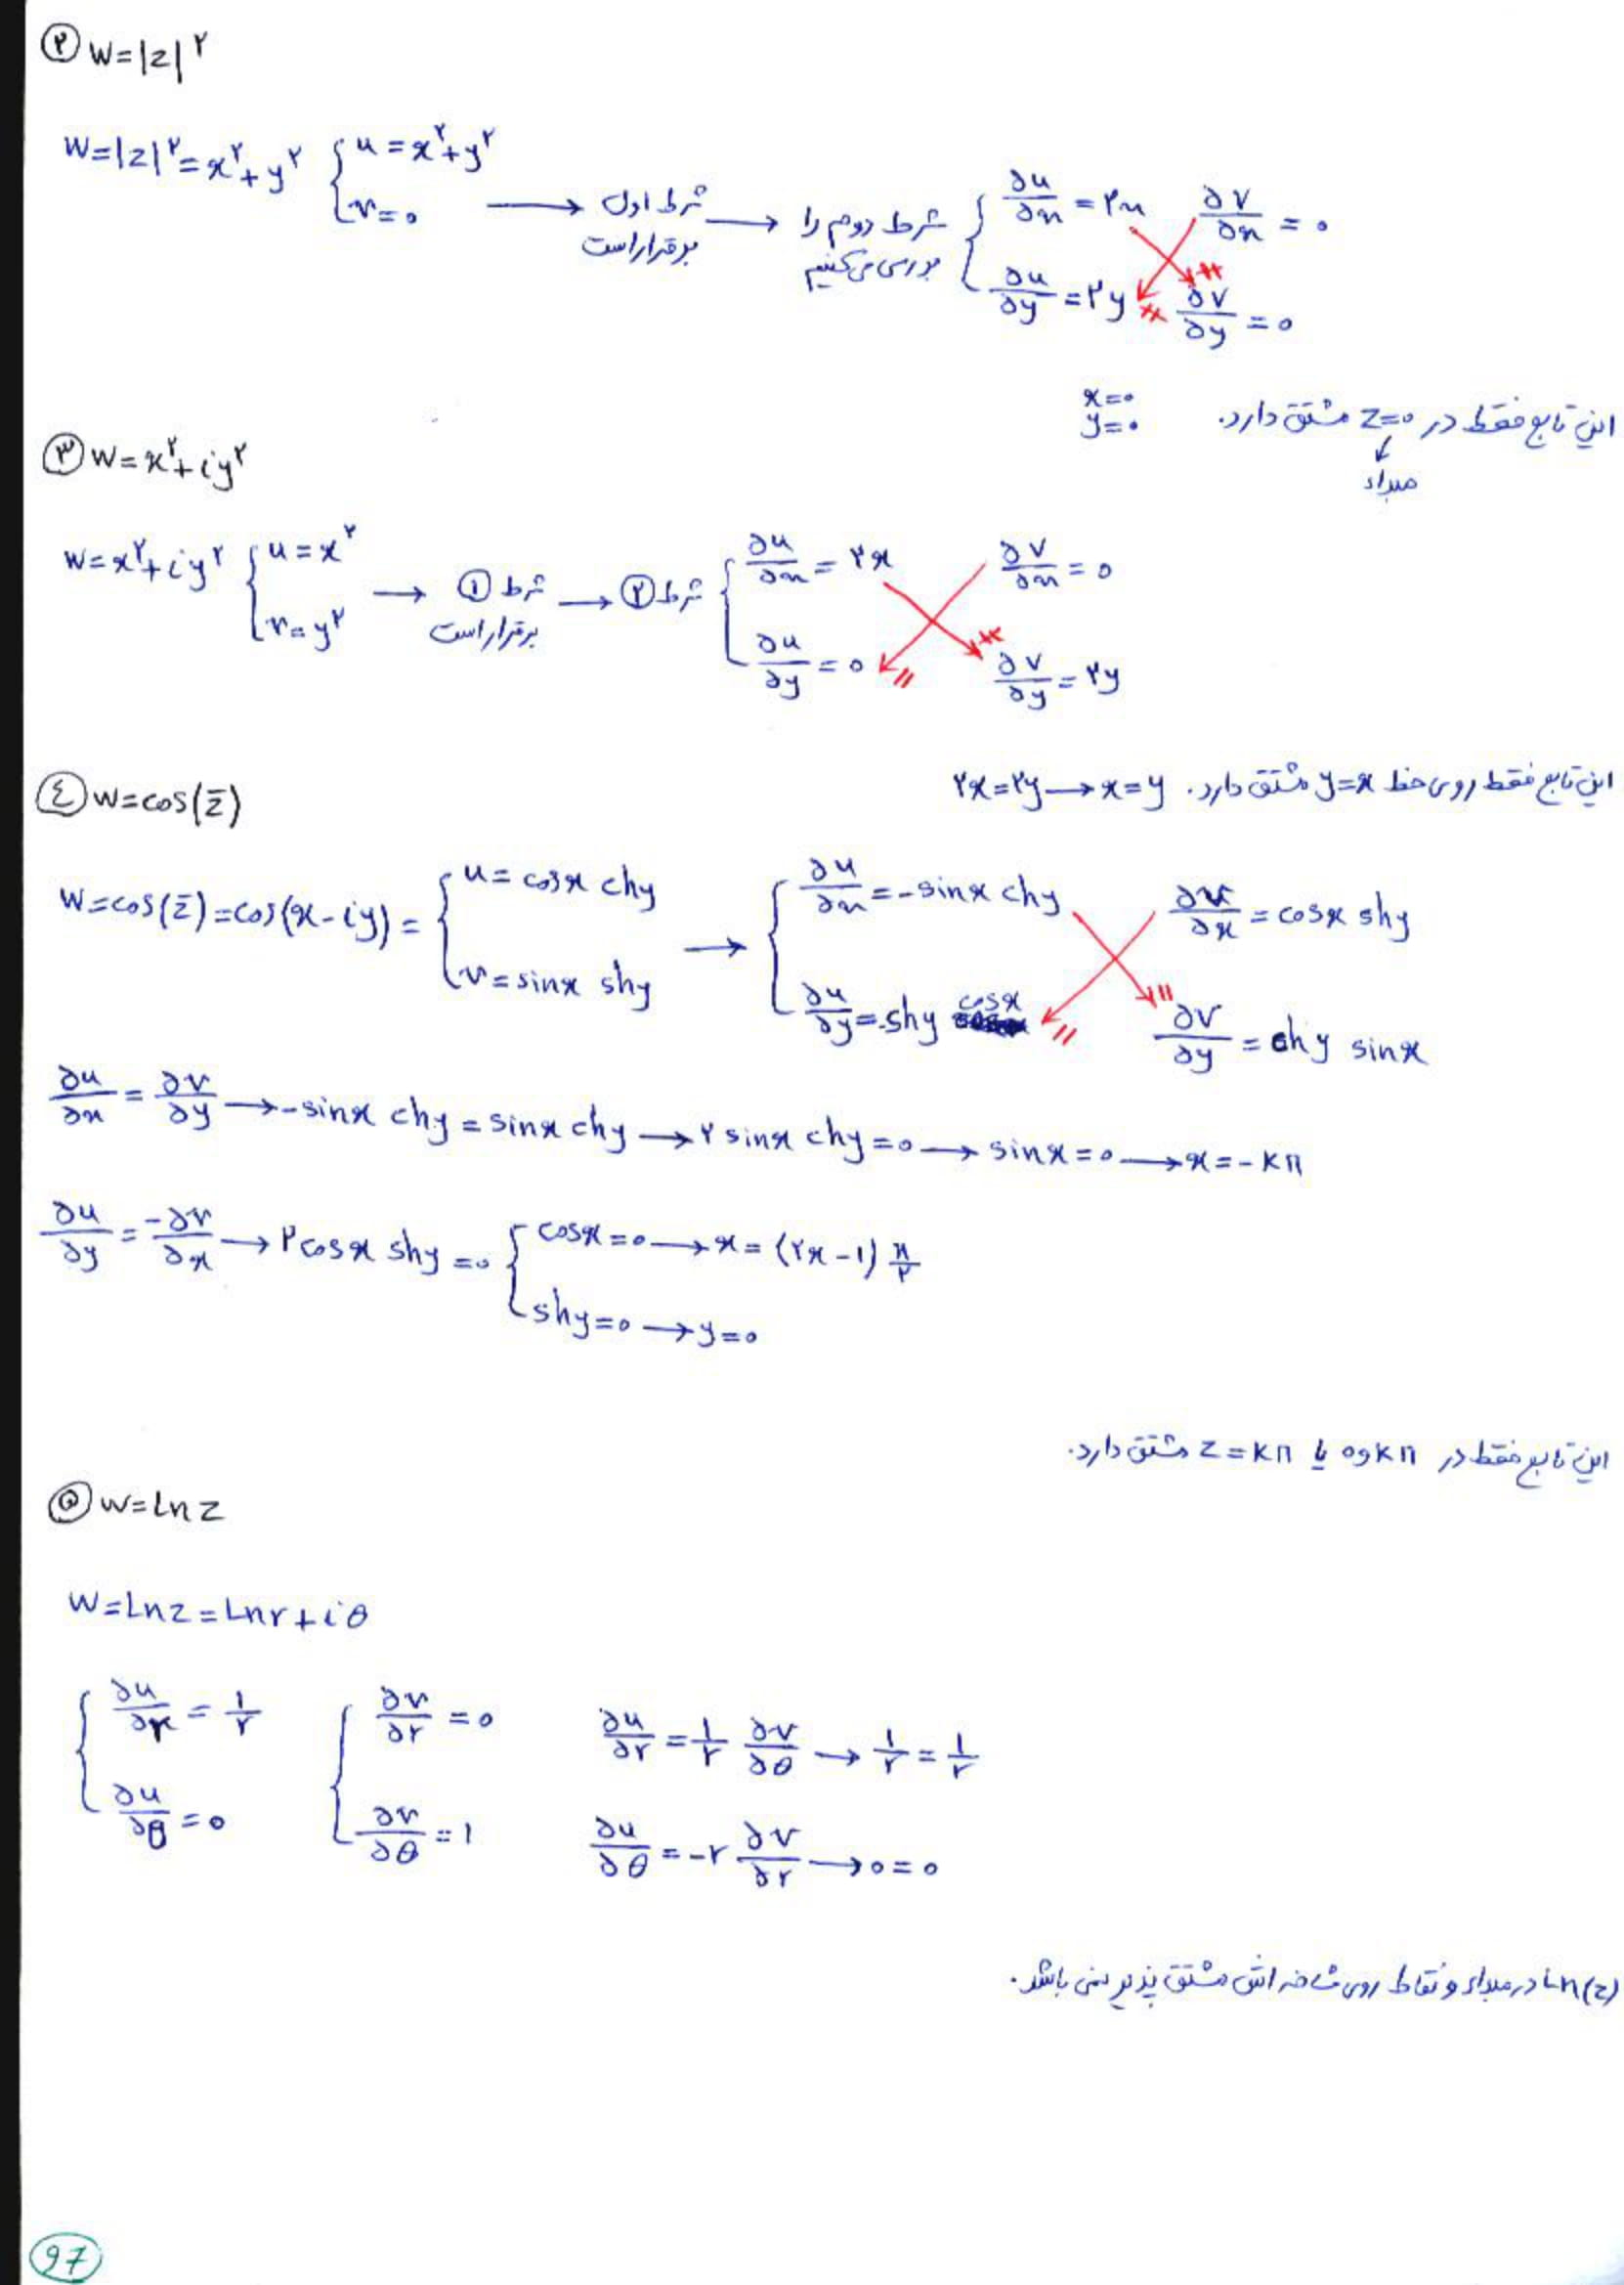 ② w=|z|²
w=|z|²=x²+y² { u=x²+y² , v=0 → شرط اول برقرار است → شرط دوم را بررسی می‌کنیم { ∂u/∂x = ۲x ∂v/∂x = 0
∂u/∂y = ۲y ∂v/∂y = 0
این تابع فقط در z=0 مشتق دارد. x=0 y=0
مبداء
③ w=x²+iy²
w=x²+iy² { u=x² , v=y² → شرط ① برقرار است → شرط ② { ∂u/∂x = ۲x ∂v/∂x = 0
∂u/∂y = 0 ∂v/∂y = ۲y
این تابع فقط روی خط y=x مشتق دارد. ۲x=۲y → x=y
④ w=cos(z̄)
w=cos(z̄)=cos(x-iy)= { u=cosx chy , v=sinx shy → { ∂u/∂x = -sinx chy ∂v/∂x = cosx shy
∂u/∂y = shy cosx ∂v/∂y = chy sinx
∂u/∂x = ∂v/∂y → -sinx chy = sinx chy → ۲ sinx chy = 0 → sinx = 0 → x = -kπ
∂u/∂y = -∂v/∂x → ۲cosx shy = 0 { cosx=0 → x = (۲x-1) π/۲
shy=0 → y=0
این تابع فقط در kπ و 0 یا z=kπ مشتق دارد.
⑤ w=Ln z
w=Ln z=Ln r+iθ
{ ∂u/∂r = 1/r { ∂v/∂r = 0 ∂u/∂r = 1/r ∂v/∂θ → 1/r = 1/r
∂u/∂θ = 0 ∂v/∂θ = 1 ∂u/∂θ = -r ∂v/∂r → 0=0
Ln(z) در مبداء و نقاط روی شاخه اش مشتق پذیر نمی باشد.
97